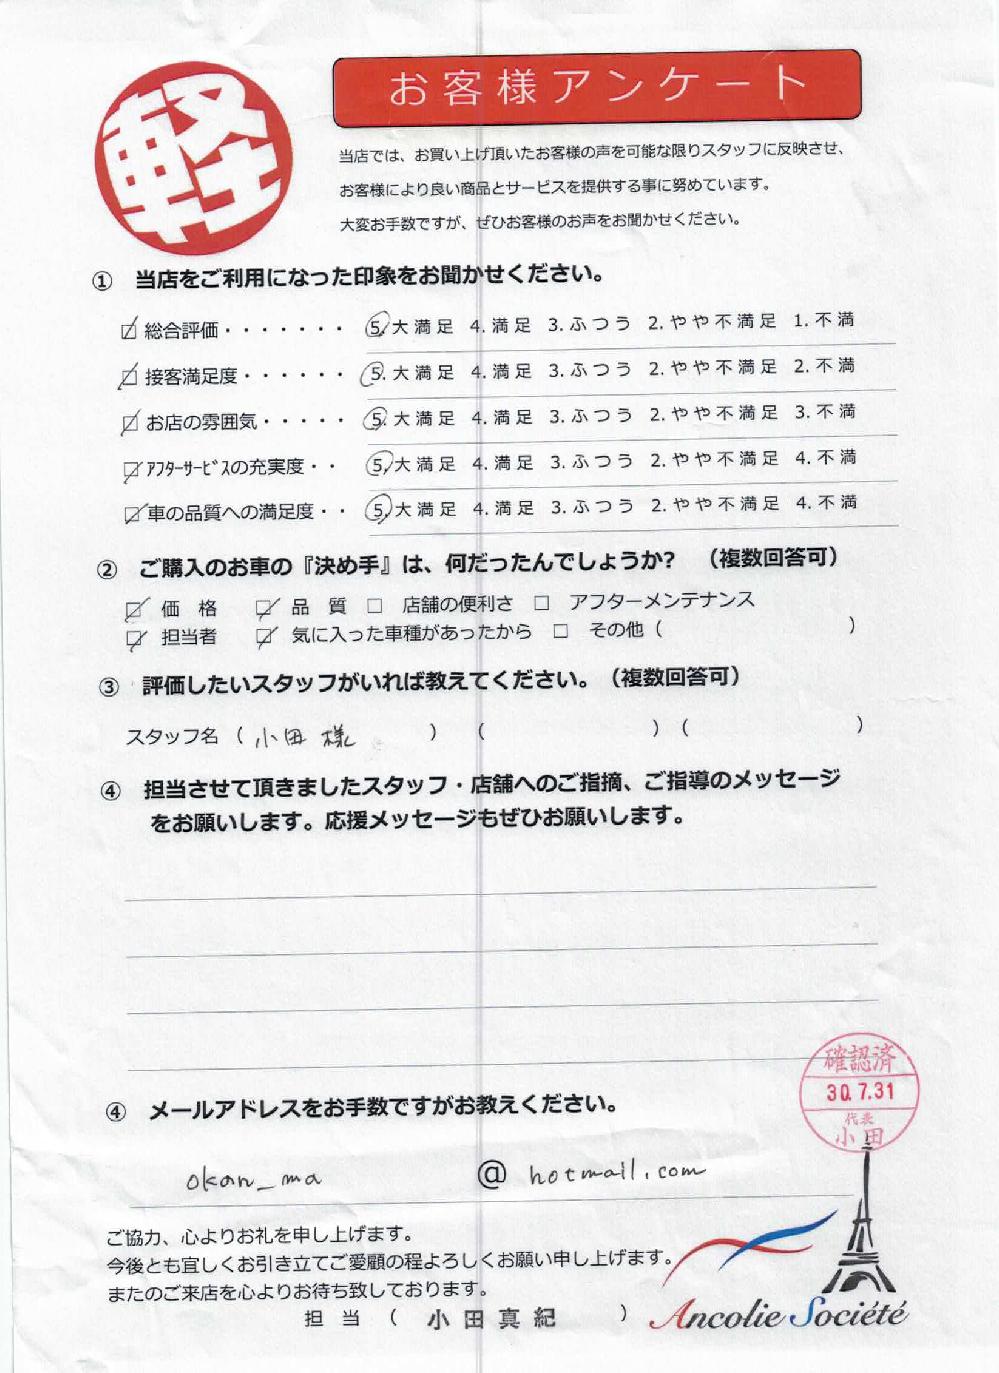 軽
お客様アンケート
当店では、お買い上げ頂いたお客様の声を可能な限りスタッフに反映させ、
お客様により良い商品とサービスを提供する事に努めています。
大変お手数ですが、ぜひお客様のお声をお聞かせください。
① 当店をご利用になった印象をお聞かせください。
☑ 総合評価・・・・・・・ 5.大満足 4.満足 3.ふつう 2.やや不満足 1.不満
☑ 接客満足度・・・・・・ 5.大満足 4.満足 3.ふつう 2.やや不満足 2.不満
☑ お店の雰囲気・・・・・ 5.大満足 4.満足 3.ふつう 2.やや不満足 3.不満
☑ ｱﾌﾀｰｻｰﾋﾞｽの充実度・・ 5.大満足 4.満足 3.ふつう 2.やや不満足 4.不満
☑ 車の品質への満足度・・ 5.大満足 4.満足 3.ふつう 2.やや不満足 4.不満
② ご購入のお車の『決め手』は、何だったんでしょうか? （複数回答可）
☑ 価 格 ☑ 品 質 □ 店舗の便利さ □ アフターメンテナンス
☑ 担当者 ☑ 気に入った車種があったから □ その他（ ）
③ 評価したいスタッフがいれば教えてください。（複数回答可）
スタッフ名（小田 様 ） （ ）（ ）
④ 担当させて頂きましたスタッフ・店舗へのご指摘、ご指導のメッセージ
をお願いします。応援メッセージもぜひお願いします。
確認済
30.7.31
代表
小田
④ メールアドレスをお手数ですがお教えください。
okan_ma @ hotmail.com
ご協力、心よりお礼を申し上げます。
今後とも宜しくお引き立てご愛顧の程よろしくお願い申し上げます。
またのご来店を心よりお待ち致しております。
担 当 （ 小田真紀 ）
Ancolie Société